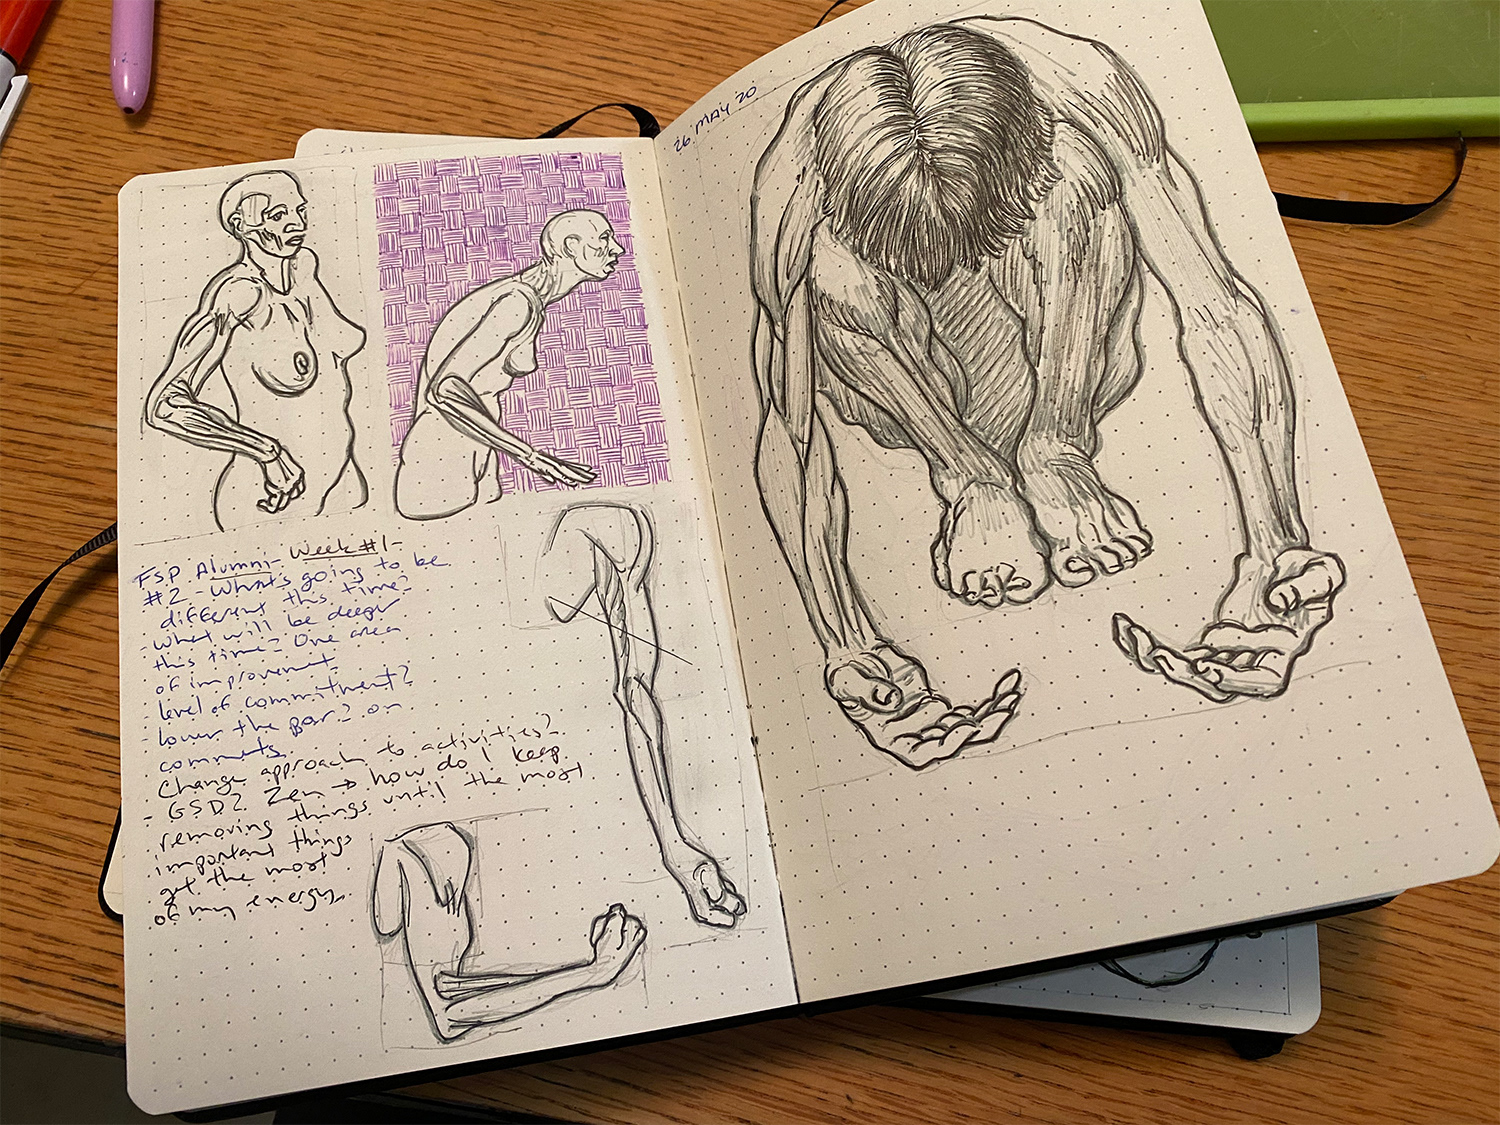 FSP Alumni- Week #1-
#2 - What's going to be
different this time?
- What will be deeper
this time? One area
of improvement.
- level of commitment?
- lower the bar? on
comments.
Change approach to activities?
- GSD? Zen → how do I keep
removing things until the most
important things
get the most
of my energy.
26 MAY '20